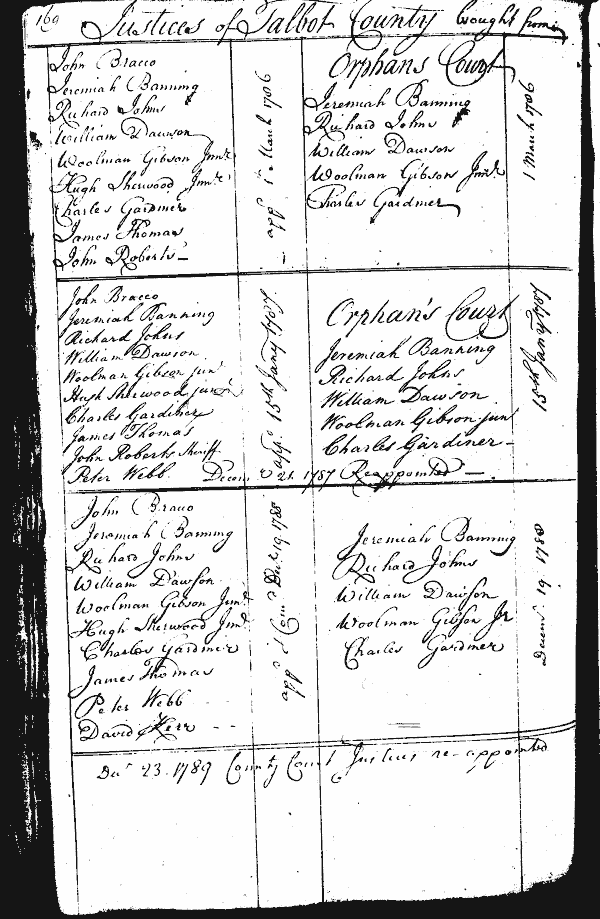 169 Justices of Talbot County brought from
John Bracco
Jeremiah Banning
Richard Johns
William Dawson
Woolman Gibson Junr
Hugh Sherwood Junr
Charles Gardiner
James Thomas
John Roberts
appd 1st March 1786
Orphans Court
Jeremiah Banning
Richard Johns
William Dawson
Woolman Gibson Junr
Charles Gardiner
1 March 1786
John Bracco
Jeremiah Banning
Richard Johns
William Dawson
Woolman Gibson junr
Hugh Sherwood junr
Charles Gardiner
James Thomas
John Roberts Sheriff
Peter Webb
appd 15th Jany 1787
Orphan's Court
Jeremiah Banning
Richard Johns
William Dawson
Woolman Gibson junr
Charles Gardiner
15th Jany 1787
Decemr 21. 1787 Reappointed
John Bracco
Jeremiah Banning
Richard Johns
William Dawson
Woolman Gibson Junr
Hugh Sherwood Junr
Charles Gardiner
James Thomas
Peter Webb
David Kerr
19 1788
Jeremiah Banning
Richard Johns
William Dawson
Woolman Gibson Jr
Charles Gardiner
Decemr 19 1788
Decr 23. 1789 County Court Justices re-appointed